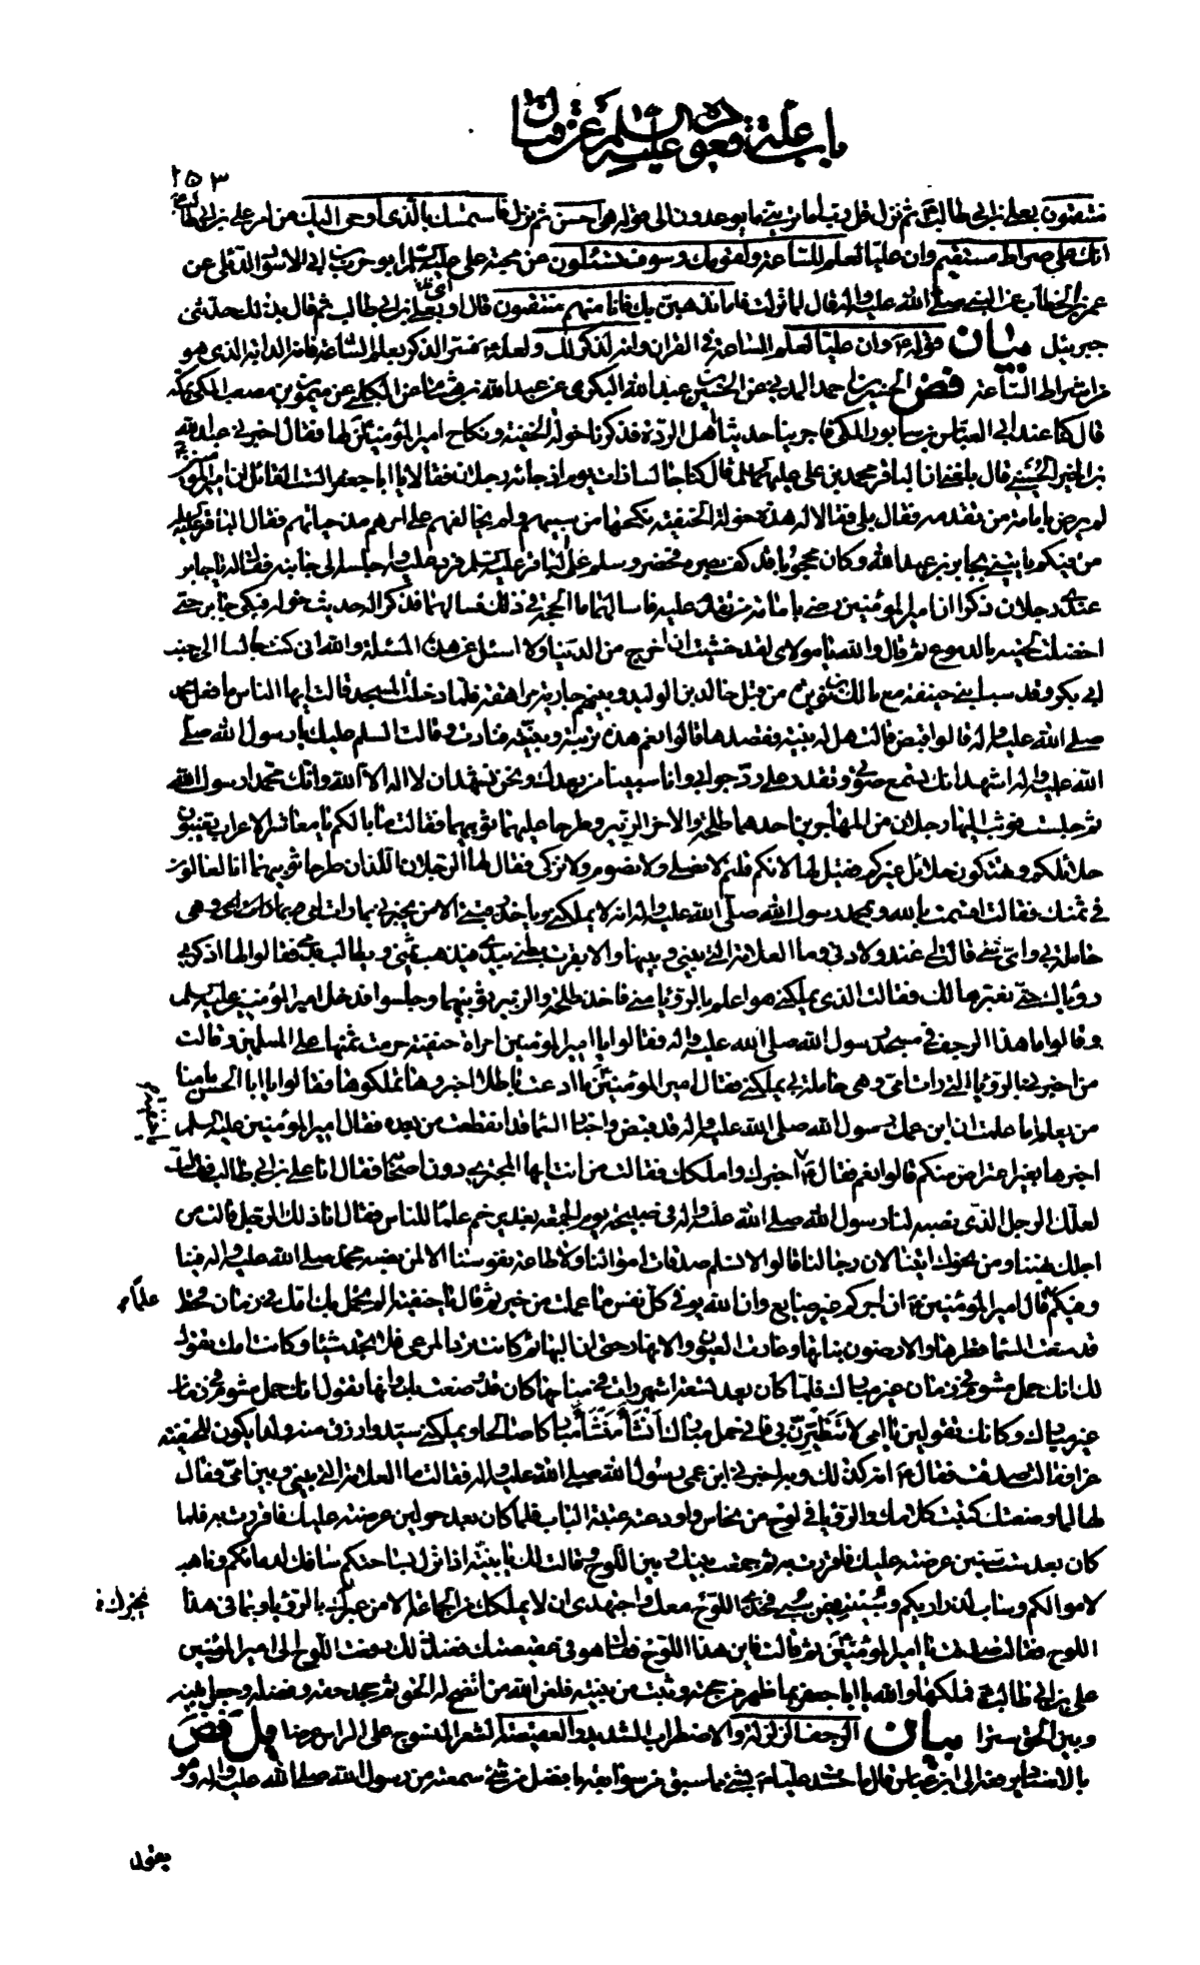 باب علة قعوده عليه السلم عن قتال
٢٥٣
منتقمون بعلي بن ابي طالب ثم نزل قل رب اما تريني ما يوعدون الى قوله هي احسن ثم نزل فاستمسك بالذي اوحى اليك من امر علي بن ابي طالب
انك على صراط مستقيم وان عليا لعلم للساعة ولقومك وسوف تسئلون عن محبة علي عليه السلم ابو حرب بن ابي الاسود الدئلي عن
عمر بن الخطاب عن النبي صلى الله عليه واله قال لما نزلت فاما نذهبن بك فانا منهم منتقمون قال او بعلي بن ابي طالب ثم قال بذلك حدثني
جبرئيل بيان قوله وان عليا لعلم للساعة في القران وانه لذكر لك ولعله فسر الذكر بعلم الساعة فانه الدابة الذي هو
من اشراط الساعة فض الحسين بن احمد المدني عن الحسين بن عبد الله البكري عن عبد الله بن هشام عن الكلبي عن ميمون بن مصعب المكي بمكة
قال كنا عند ابي العباس بن سابور المكي فاجرينا حديث اهل الردة فذكرنا خولة الحنفية ونكاح امير المؤمنين لها فقال اخبرني عبد الله
بن الخير الحسيني قال بلغني ان الباقر محمد بن علي عليهما السلم قال كنا جالسا ذات يوم اذ جائه رجلان فقالا يا ابا جعفر الست القائل ان امير المؤمنين
لم يرض بامامة من تقدمه فقال بلى فقالا له هذه خولة الحنفية نكحها من سبيهم ولم يخالفهم على امرهم مذ حياتهم فقال الباقر عليه السلم
من فيكم ياتيني بجابر بن عبد الله وكان محجوبا قد كف بصره فحضر وسلم على الباقر عليه السلم فرد عليه واجلسه الى جانبه فقال له يا جابر
عندي رجلان ذكرا ان امير المؤمنين رضي بامامة من تقدم عليه فاسالهما ما الحجة في ذلك فسالهما فذكرا له حديث خولة فبكى جابر حتى
اخضلت لحيته بالدموع ثم قال والله يا مولاي لقد خشيت ان اخرج من الدنيا ولا اسئل عن هذه المسئلة والله اني كنت جالسا الى جنب
ابي بكر وقد سبى بني حنيفة مع مالك بن نويرة من قبل خالد بن الوليد وبينهم جارية مراهقة فلما دخلت المسجد قالت ايها الناس ما فعل محمد
صلى الله عليه واله قالوا قبض قالت هل له بنية تقصد ها قالوا نعم هذه تربته وبنيته فنادت وقالت السلم عليك يا رسول الله صلى
الله عليه واله اشهد انك تسمع صوتي وتقدر على رد جوابي وانا سبينا من بعدك ونحن نشهد ان لا اله الا الله وانك محمد رسول الله
ثم جلست فوثب اليها رجلان من المهاجرين احدهما طلحة والاخر الزبير وطرحا عليها ثوبيهما فقالت ما بالكم يا معاشر الاعراب تغيبون
حلائلكم وتهتكون حلائل غيركم فقيل لها لانكم قلتم لا نصلي ولا نصوم ولا نزكي فقال لها الرجلان اللذان طرحا ثوبيهما انا لغالون
في ثمنك فقالت اقسمت بالله وبمحمد رسول الله صلى الله عليه واله انه لا يملكني وياخذ رقبتي الا من يخبرني بما رات امي وهي
حاملة بي واي شئ قالت لي عند ولادتي وما العلامة التي بيني وبينها والا بقرت بطني بيدي فيذهب ثمني ويطالب بدمي فقالوا لها اذكري
رؤياك حتى نعبرها لك فقالت الذي يملكني هو اعلم بالرؤيا مني فاخذ طلحة والزبير ثوبيهما وجلسوا فدخل امير المؤمنين عليه السلم
وقالوا ما هذا الرجف في مسجد رسول الله صلى الله عليه واله فقالوا يا امير المؤمنين امراة حنفية حرمت ثمنها على المسلمين وقالت
من اخبرني بالرؤيا التي رات امي وهي حاملة بي يملكني فقال امير المؤمنين ما ادعت باطلا اخبروها تملكوها فقالوا يا ابا الحسن ما فينا
من يعلم اما علمت ان ابن عمك رسول الله صلى الله عليه واله قد قبض واخبار السماء قد انقطعت من بعده فقال امير المؤمنين عليه السلم
اخبرها بغير اعتراض منكم قالوا نعم فقال اخبرك واملكك فقالت من انت ايها المجتري دون اصحابه فقال انا علي بن ابي طالب فقالت
لعلك الرجل الذي نصبه لنا رسول الله صلى الله عليه واله في صبيحة يوم الجمعة بغدير خم علما للناس فقال انا ذلك الرجل قالت من
اجلك نهبنا ومن نحوك اتينا لان رجالنا قالوا لا نسلم صدقات اموالنا ولا طاعة نفوسنا الا لمن نصبه محمد صلى الله عليه واله فينا
وفيكم علما قال امير المؤمنين ان اجركم غير ضايع وان الله يوفي كل نفس ما عملت من خير ثم قال يا حنفية الم تحمل بك امك في زمان قحط
قد منعت السماء قطرها والارضون نباتها وغارت العيون والانهار حتى ان البهائم كانت ترد المرعى فلا تجد شيئا وكانت امك تقول
لك انك حمل مشوم في زمان غير مبارك فلما كان بعد تسعة اشهر رات في منامها كان قد وضعت بك وانها تقول انك حمل مشوم في زمان
غير مبارك وكانك تقولين يا امي لا تتطيرن بي فاني حمل مبارك انشا منشا مباركا صالحا ويملكني سيد وارزق منه ولدا يكون للحنفية
عزا فقالت صدقت فقال انه كذلك وبه اخبرني ابن عمي رسول الله صلى الله عليه واله فقالت ما العلامة التي بيني وبين امي فقال
لها لما وضعتك كتبت كلامك والرؤيا في لوح من نحاس واودعته عتبة الباب فلما كان بعد حولين عرضته عليك فاقررت به فلما
كان بعد ست سنين عرضته عليك فاقررت به ثم جمعت بينك وبين اللوح وقالت لك يا بنية اذا نزل بساحتكم سافك لدمائكم وناهب
لاموالكم وساب لذراريكم وسبيت فيمن سبي فخذي اللوح معك واجتهدي ان لا يملكك من الجماعة الا من يخبرك بالرؤيا وبما في هذا
اللوح فقالت صدقت يا امير المؤمنين ثم قالت فاين هذا اللوح فقال هو في عقيصتك فعند ذلك دفعت اللوح الى امير المؤمنين
علي بن ابي طالب فملكها والله يا ابا جعفر بما ظهر من حجته وثبت من بينته فلعن الله من اتضح له الحق ثم جحد حقه وفضله وجعل بينه
وبين الحق سترا بيان الرجف الزلزلة والاضطراب الشديد والعقيصة الشعر المنسوج على الراس عرضا يل فض
بالاسناد يرفعه الى ابن عباس قال ما حسدت عليا بشئ مما سبق من سوابقه بافضل من شئ سمعته من رسول الله صلى الله عليه واله وهو
يقول